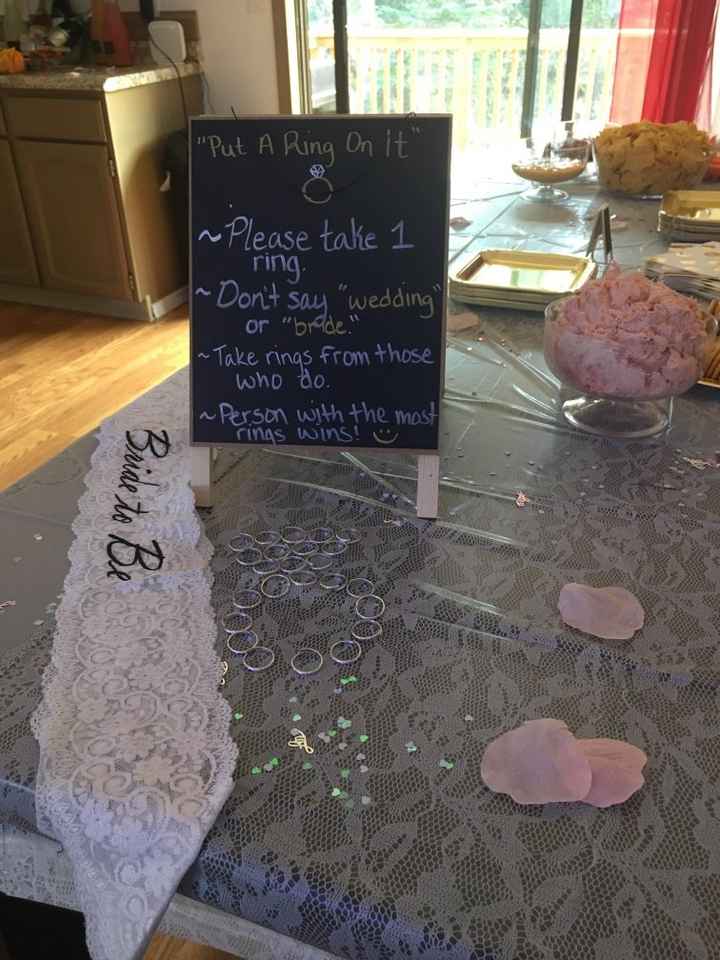 "Put A Ring On it"
~ Please take 1
ring.
~ Don't say "wedding"
or "bride."
~ Take rings from those
who do.
~ Person with the most
rings wins!
Bride to Be